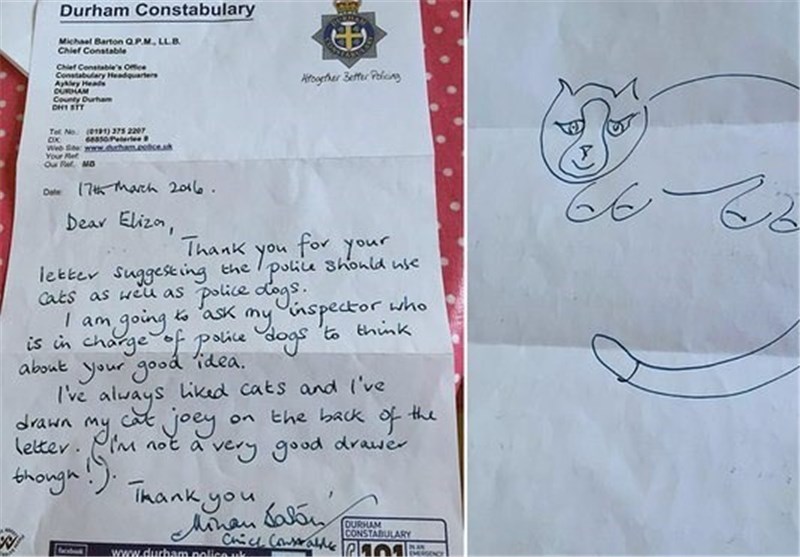 Durham Constabulary
Michael Barton Q.P.M., LL.B.
Chief Constable
Chief Constable's Office
Constabulary Headquarters
Aykley Heads
DURHAM
County Durham
DH1 5TT
Altogether Better Policing
Tel. No.: (0191) 375 2207
DX: 68850/Peterlee 8
Web Site: www.durham.police.uk
Your Ref:
Our Ref: MB
Date: 17th March 2016.
Dear Eliza,
Thank you for your
letter suggesting the police should use
cats as well as police dogs.
I am going to ask my inspector who
is in charge of police dogs to think
about your good idea.
I've always liked cats and I've
drawn my cat joey on the back of the
letter. (I'm not a very good drawer
though!).
Thank you
Chief Constable
facebook
www.durham.police.uk
DURHAM
CONSTABULARY
101
IN AN
EMERGENCY